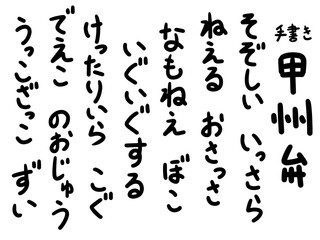 手書き
甲州弁
そぞしい いっさら
ねえる おさっさ
なもねえ ぼこ
いぐいぐする
けったりいら こぐ
でえこ のおじゅう
うっこざっこ ずい